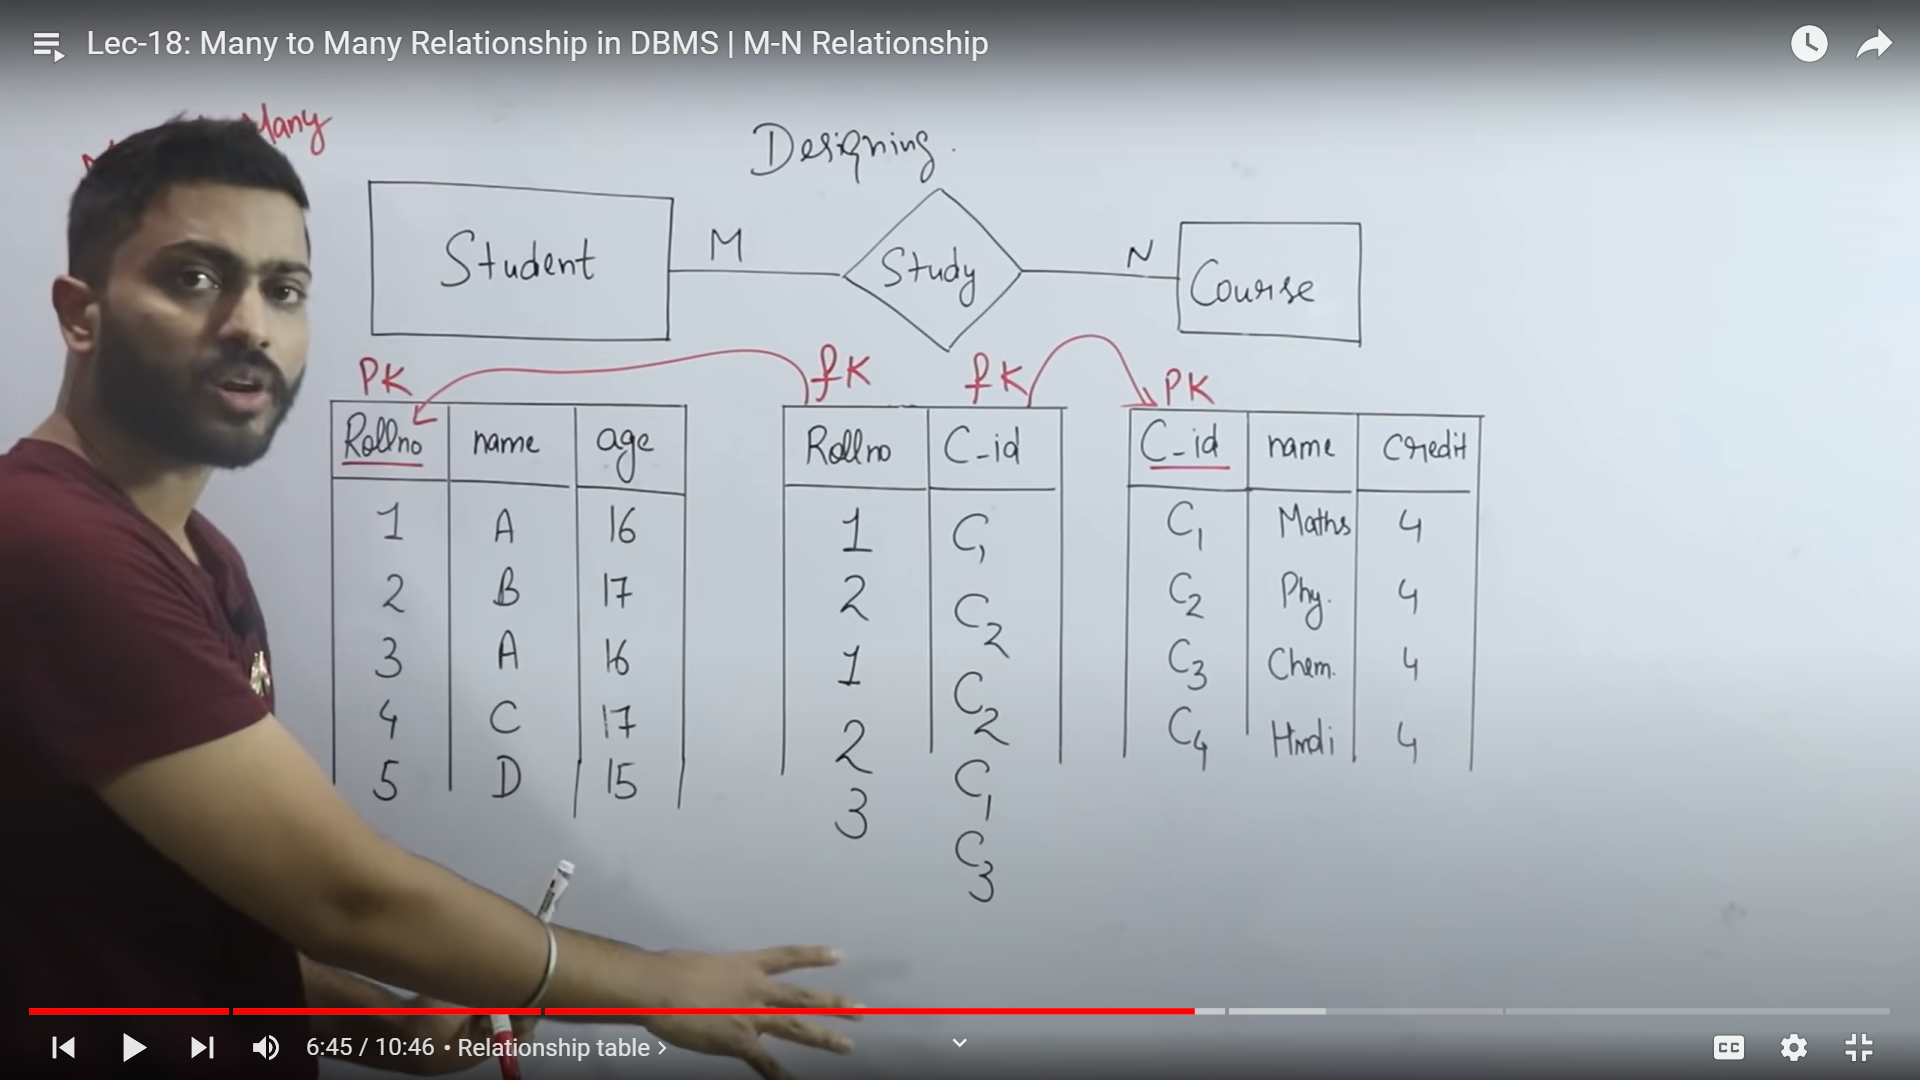 Lec-18: Many to Many Relationship in DBMS | M-N Relationship
Many
Designing.
Student M Study N Course
PK fK fK PK
Rollno name age
1 A 16
2 B 17
3 A 16
4 C 17
5 D 15
Rollno C-id
1 C1
2 C2
1 C2
2 C1
3 C3
C-id name Credit
C1 Maths 4
C2 Phy. 4
C3 Chem. 4
C4 Hindi 4
6:45 / 10:46 • Relationship table >
CC